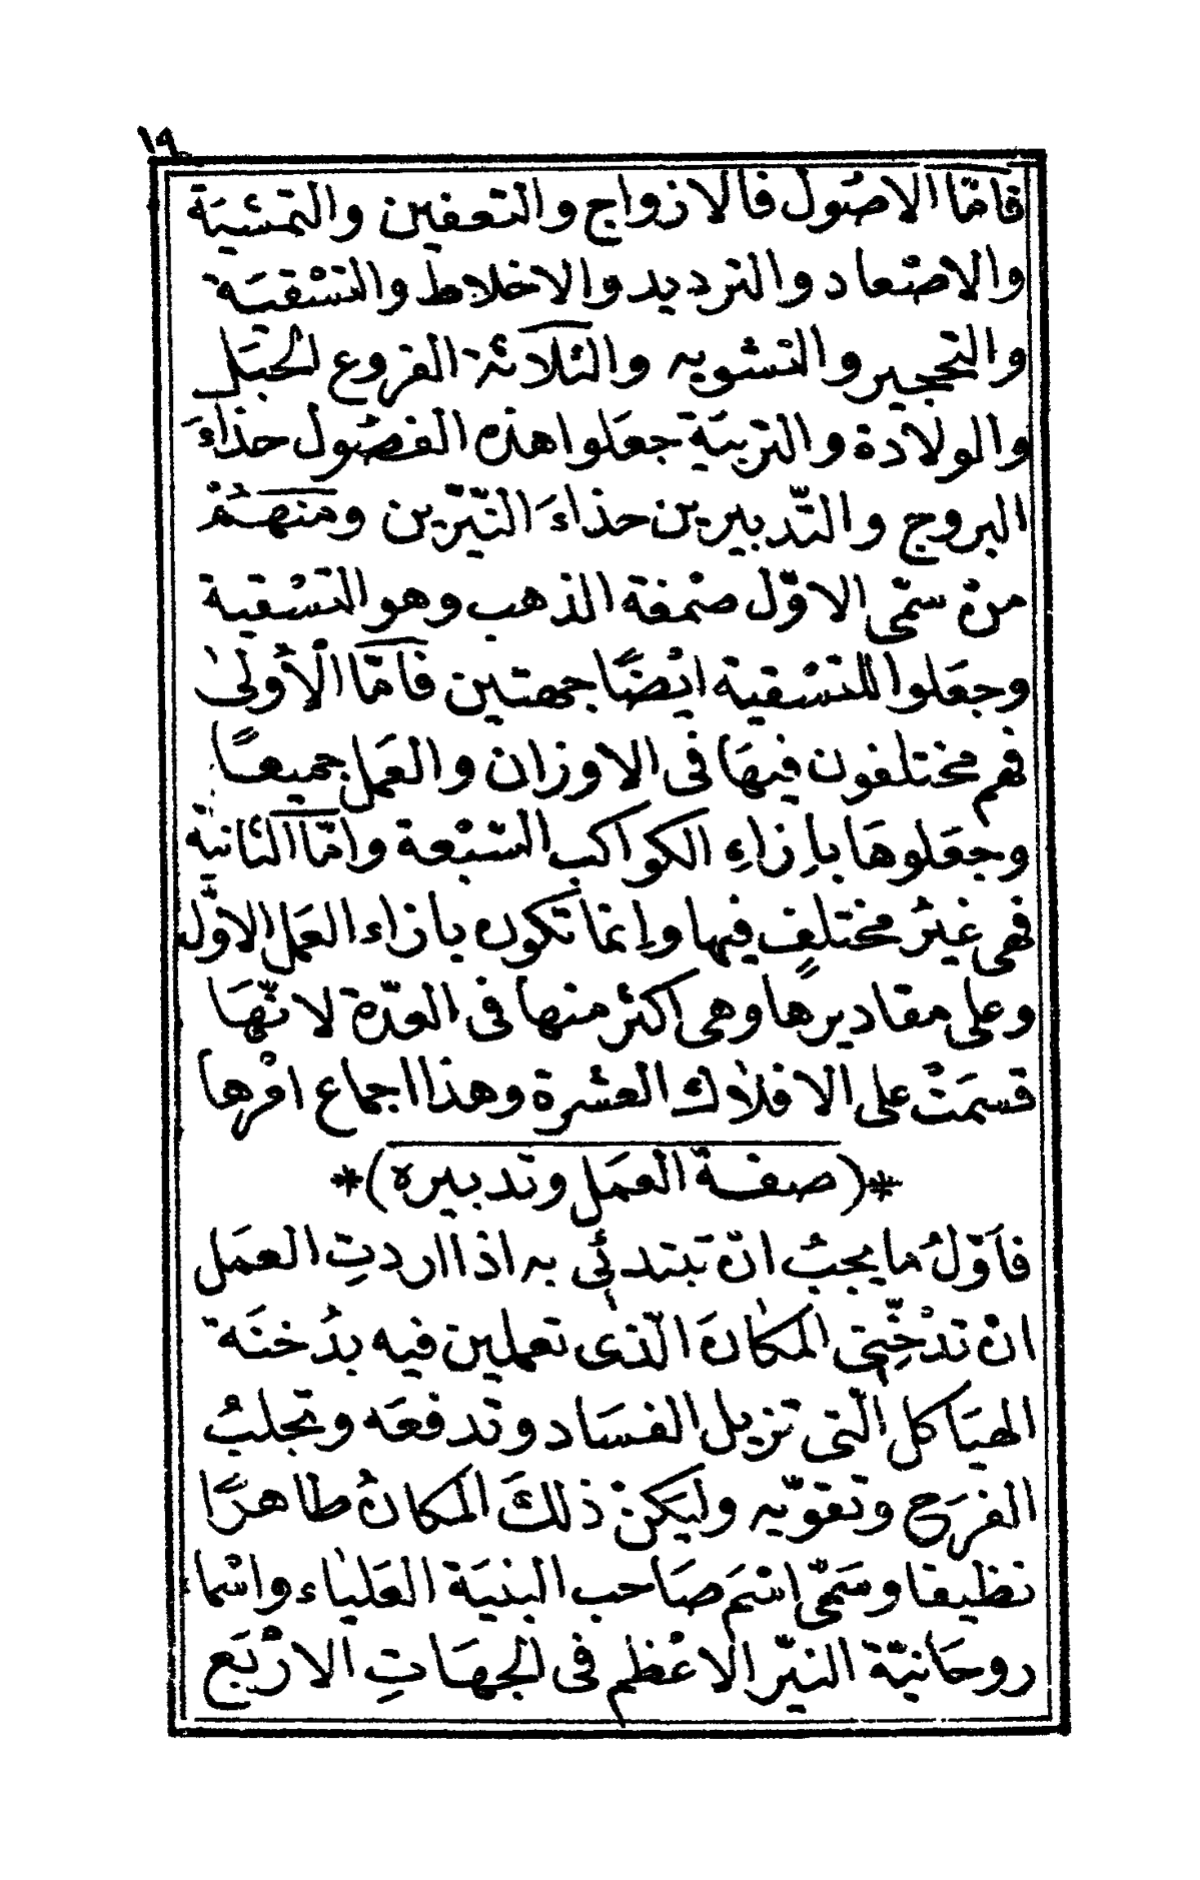 ١٩
فامّا الاصُول فالازواج والتعفين والتمشيَة
والاصْعاد والترديد والاخلاط والتسْقيَة
والتحجير والتشويه والثلاثة الفروع الحبَل
والولادة والتربيَة جعَلوا هذه الفصُول حذاءَ
البروج والتّدبيرين حذاءَ النّيّرين ومنهُمْ
منْ سمّى الاوّل صْمغة الذهب وهو التسْقية
وجعَلوا للتسْقية ايْضًا جهتين فامّا الْأُولىٰ
فهم مختلفون فيهَا فى الاوزان والعَمل جميعًا
وجعَلوهَا باِزاءِ الكواكب السّبْعة وامّا الثانيَة
فهى غيْر مختلفٍ فيها واِنما تكون بازاء العَمل الاوّل
وعلى مقاديرها وهى اكثر منها فى العدّة لانّهَا
قسمَتْ على الافلاك العشْرة وهذا اجماع امْرها
*(صفة العمَل وتدبيره)*
فاَوّلُ ما يجبُ انْ تبتدئى به اذا اردتِ العمَل
انْ تدْخِّنى المكانَ الّذى تعملين فيه بدُخنَة
الهيَاكل الّتى تزيل الفسَاد وتدفعَه وتجلبُ
الفرَح وتقوّيه وليَكنْ ذلكَ المكانُ طاهرًا
نظيفا وسَمّى اسْمَ صَاحب البنيَة العَليٰاء واسْماء
روحَانيّة النيّر الاعْظم فى الجهَاتِ الارْبَع